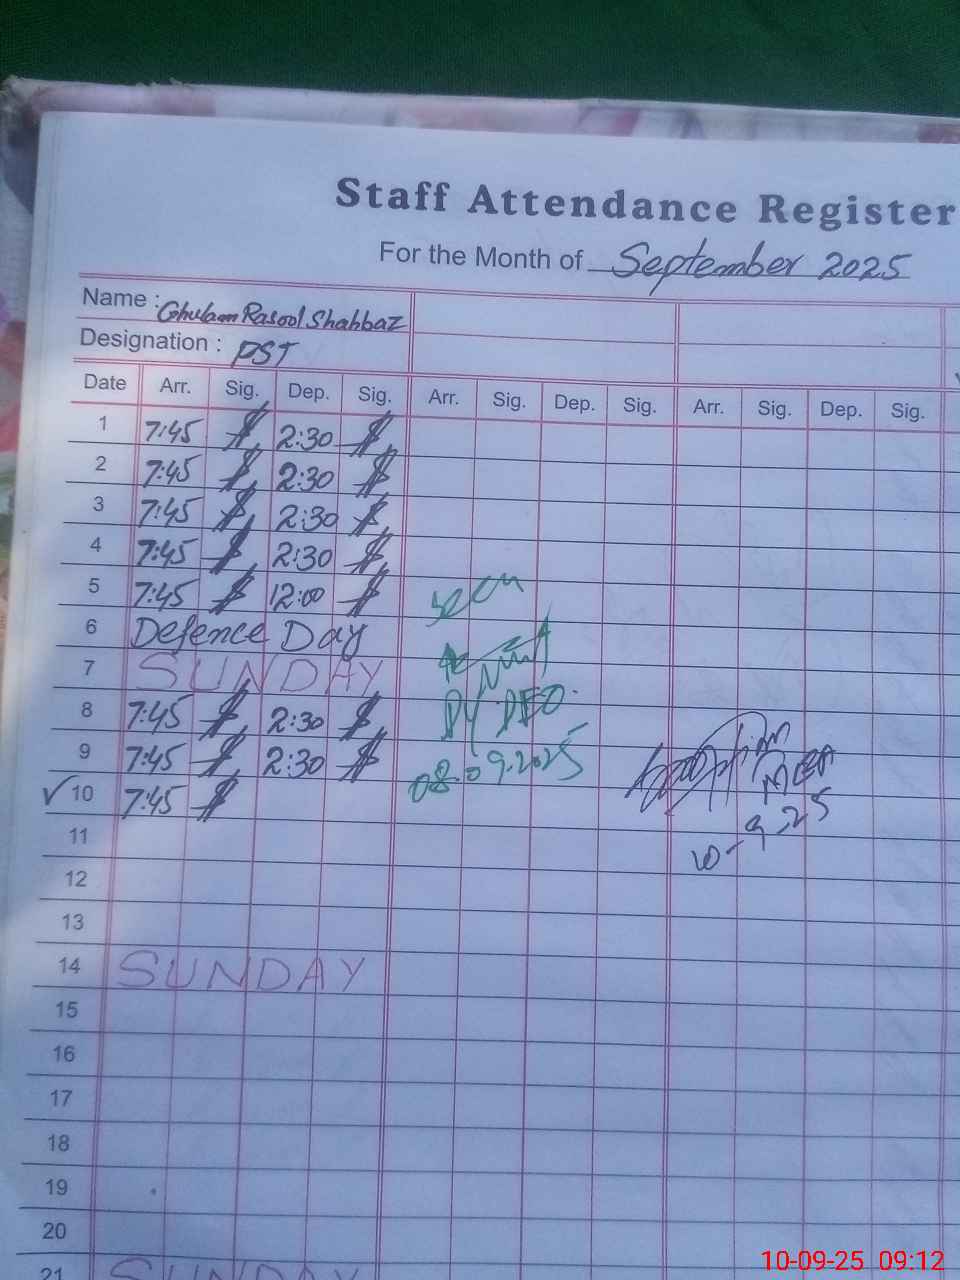 Staff Attendance Register
For the Month of September 2025
Name : Ghulam Rasool Shahbaz
Designation : PST
Date Arr. Sig. Dep. Sig. Arr. Sig. Dep. Sig. Arr. Sig. Dep. Sig.
1 7:45 2:30
2 7:45 2:30
3 7:45 2:30
4 7:45 2:30
5 7:45 12:00
seen
6 Defence Day
7 SUNDAY
8 7:45 2:30
Dy DEO
9 7:45 2:30
08.09.2025
MEA
10 7:45
10-9-25
11
12
13
14 SUNDAY
15
16
17
18
19
20
21 SUNDAY
10-09-25 09:12